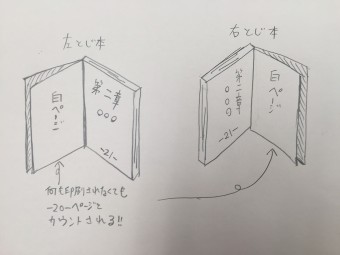 左とじ本
白ページ
第二章
○○○
-21-
何も印刷されなくても
-20-ページで
カウントされる!!
右とじ本
第二章
○○○
-21-
白ページ